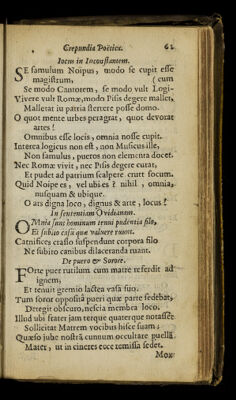 Crepundia Poëtica. 62
Iocus in Inconstantem.
SE famulum Noipus, modo se cupit esse
magistrum, (cum
Se modo Cantorem, se modo vult Logi-
Vivere vult Romæ, modo Pisis degere mallet,
Malletat iu patria stertere posse domo.
O quot mente urbes peragrat, quot devorat
artes!
Omnibus esse locis, omnia nosse cupit.
Interea logicus non est, non Musicus ille,
Non famulus, pueros non elementa docet.
Nec Romæ vivit, nec Pisis degere curat,
Et pudet ad patrium scalpere crurt focum.
Quid Noipe es, vel ubi es? nihil, omnia,
nusquam & ubique.
O ars digna loco, dignus & arte, locus!
In sententiam Ovidianam.
OMnia sunt hominum tenui pendentia filo,
Et subito casu quæ valuere ruunt.
Carnifices crasso suspendunt corpora filo
Ne subito canibus dilaceranda ruant.
De puero & Sorore.
FOrte puer rutilum cum matre referdit ad
ignem,
Et tenuit gremio lactea vasa suo.
Tum soror opposita pueri quæ parte sedebat,
Detegit obscuro, nescia membra loco.
Illud ubi frater jam terque quaterque notasset
Sollicitat Matrem vocibus hisce suam;
Quæso jube nostrā cunnum occultare puellā
Mater, ut in cineres ecce remissa sedet.
Mox